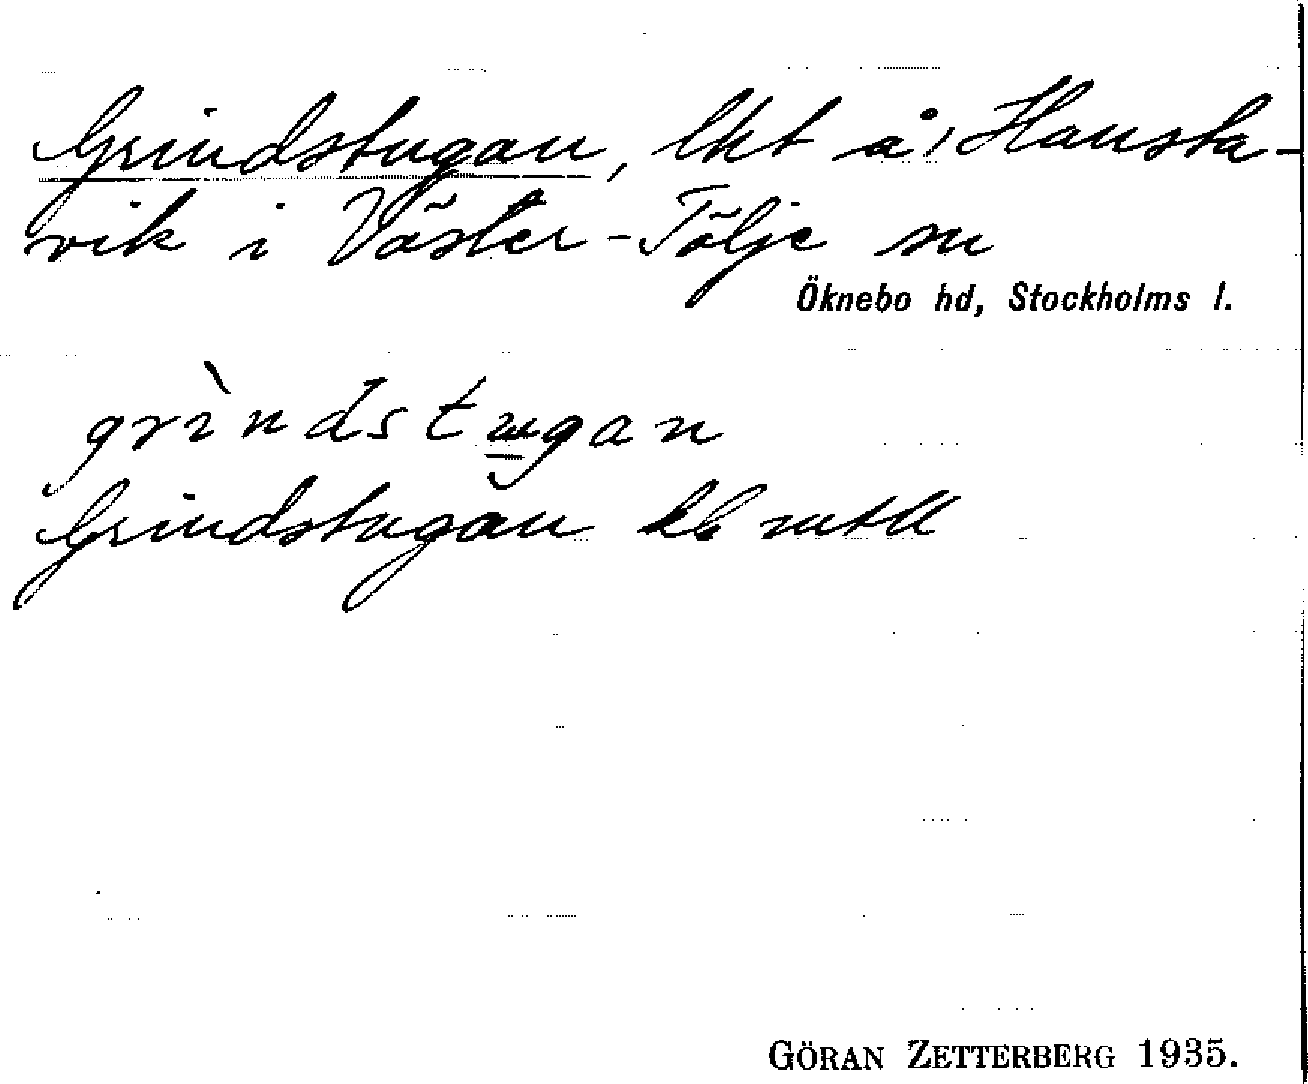 Grindstugan, lht å, Hansta-
vik i Väster-Tälje sn
Öknebo hd, Stockholms l.
grìndstugan
Grindstugan
GÖRAN ZETTERBERG 1935.